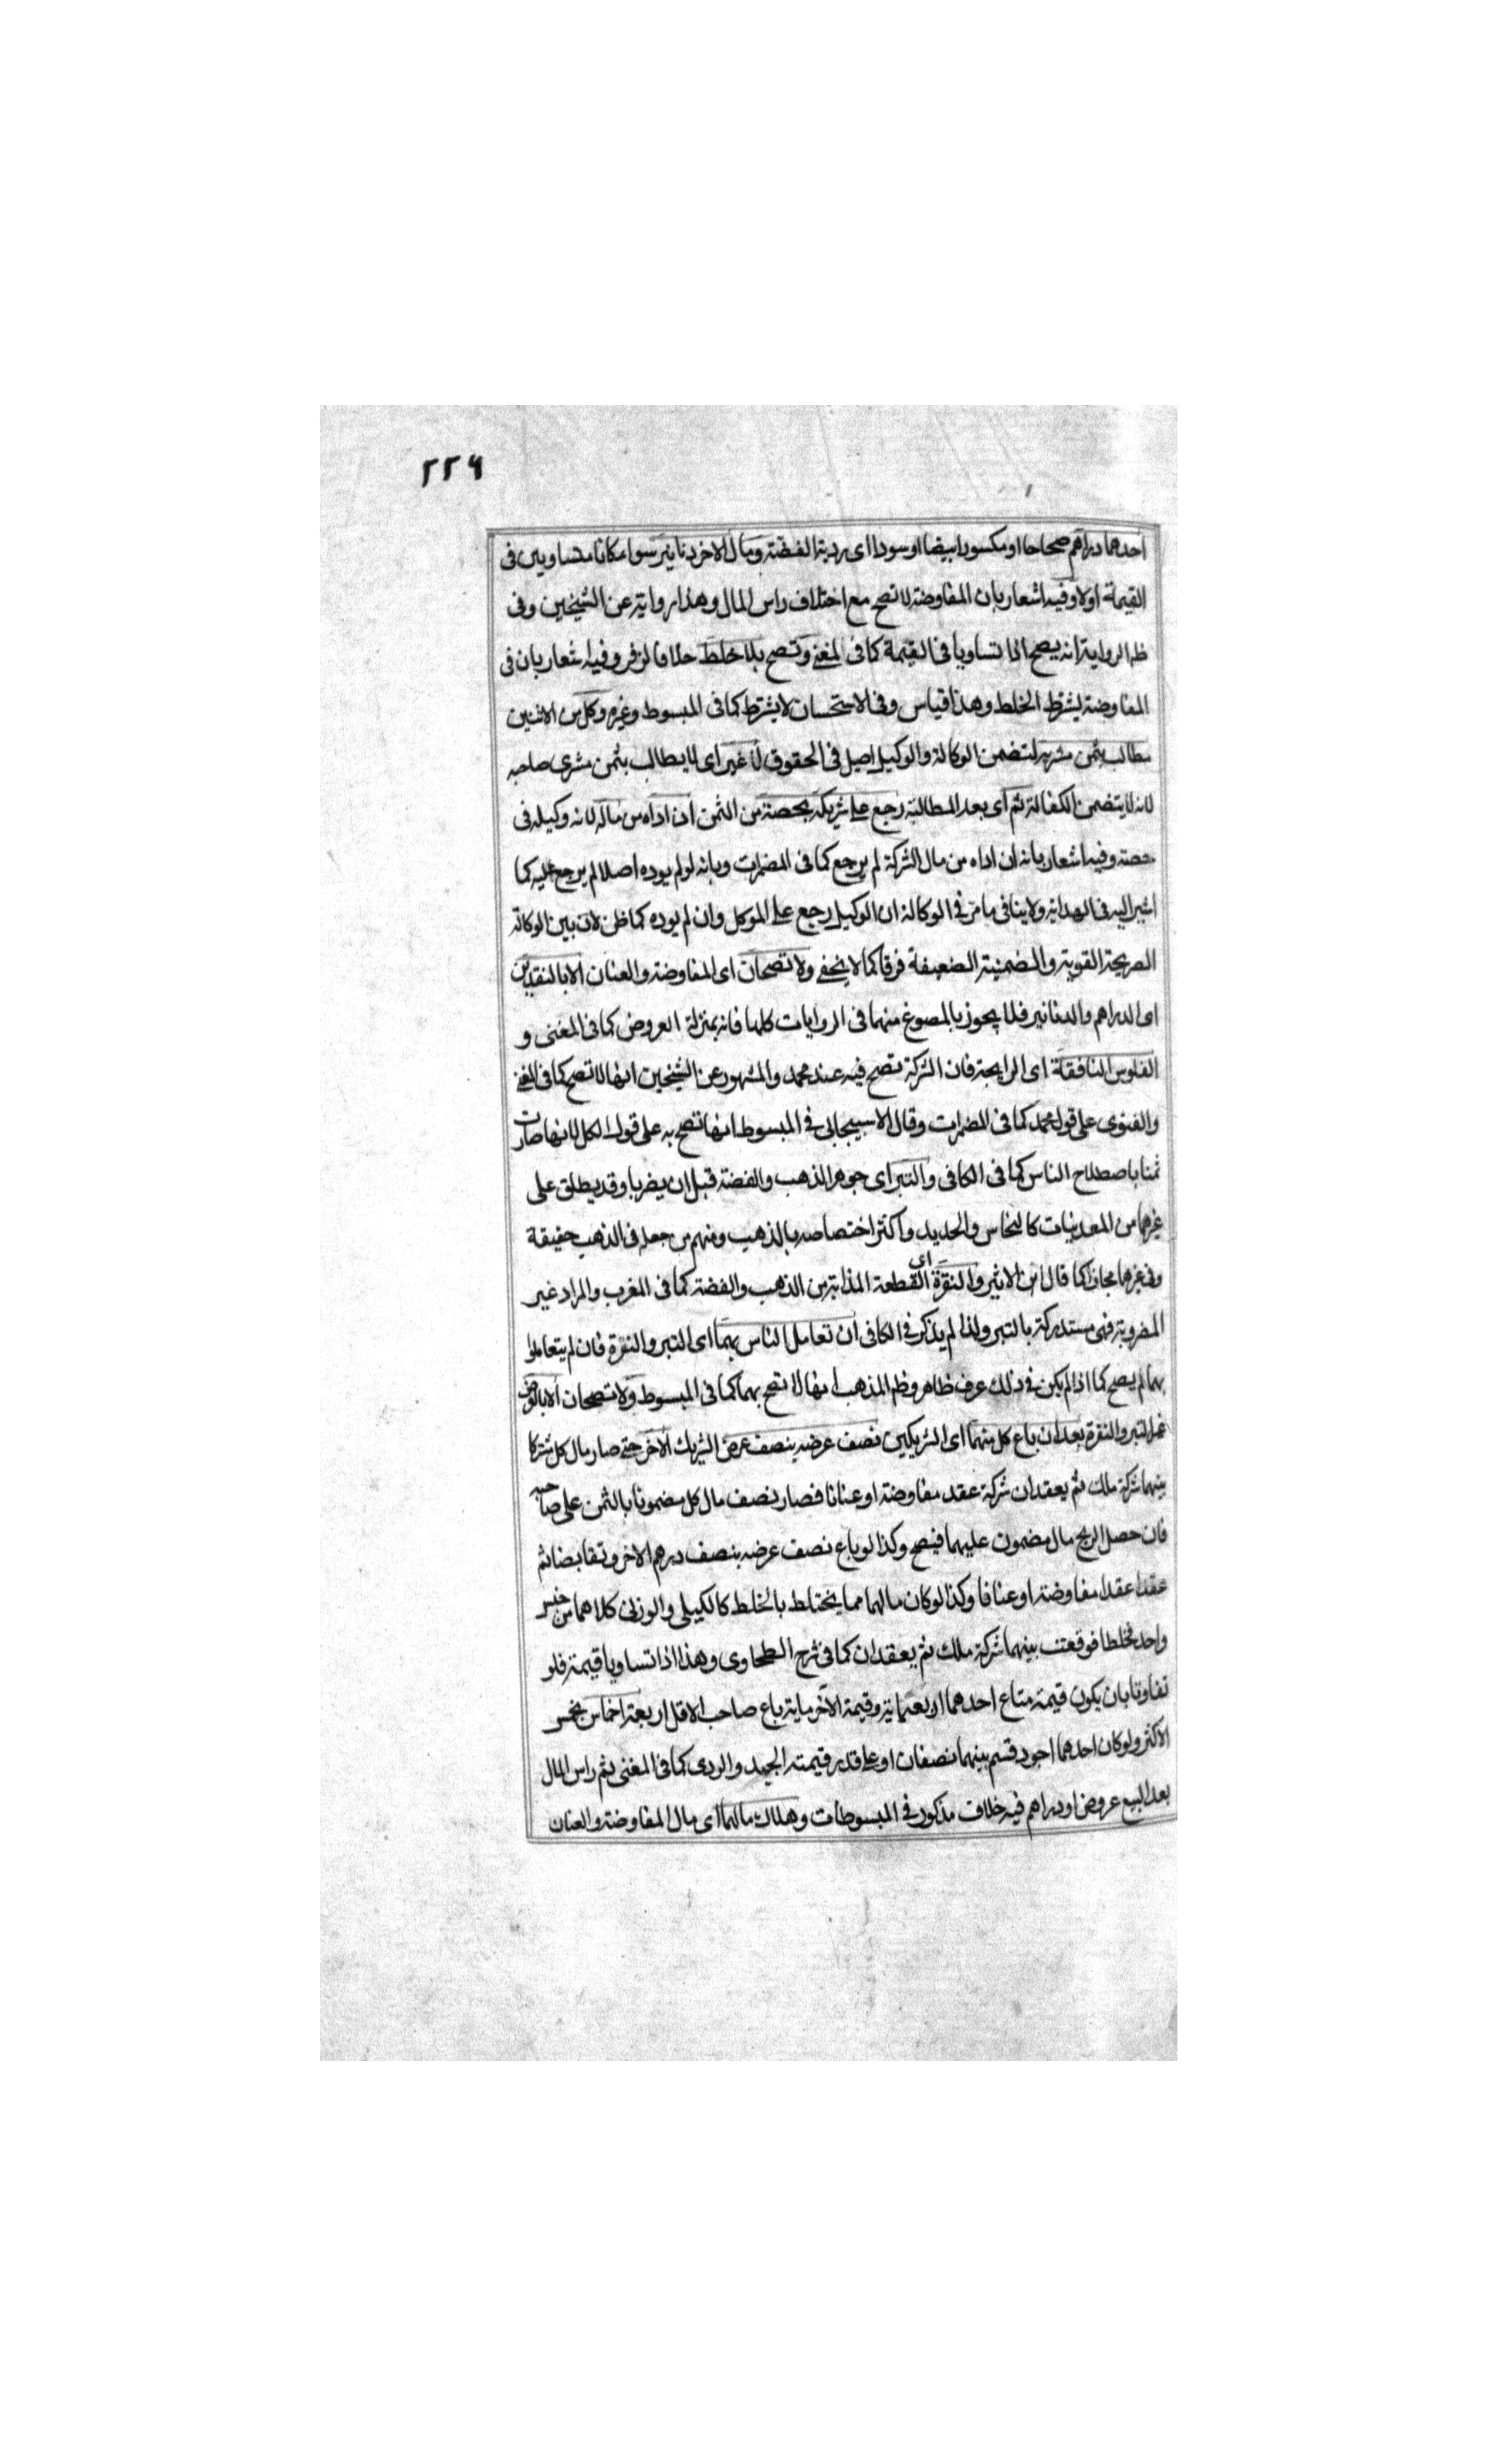 ٢٢٦
احدهما دراهم صحاحا او مكسورا بيضا او سودا اى ردية الفضة ومال الاخر دنانير سواء كانا متساويين فى
القيمة اولا وفيه اشعار بان المفاوضة لا تصح مع اختلاف راس المال وهذا رواية عن الشيخين وفى
ظ الرواية انه يصح اذا تساويا فى القيمة كما فى المغنى وتصح بلا خلط خلافا لزفر وفيه اشعار بان فى
المفاوضة يشترط الخلط وهذا قياس وفى الاستحسان لا يشترط كما فى المبسوط وغيره وكل من الاثنين
مطالب بثمن مشريه لتضمن الوكالة والوكيل اصيل فى الحقوق لا غير اى لا يطالب بثمن مشرى صاحبه
لانه لا يتضمن الكفالة ثم اى بعد المطالبة رجع على شريكه بحصته من الثمن ان اداه من ماله لانه وكيله فى
حصته وفيه اشعار بانه ان اداه من مال الشركة لم يرجع كما فى المضمرات وبانه لو لم يوده اصلا لم يرجع عليه كما
اشير اليه فى الهداية ولا ينافى ما مر فى الوكالة ان الوكيل يرجع على الموكل وان لم يوده كما ظن لان بين الوكالة
الصريحة القوية والضمنية الضعيفة فرقا كما لا يخفى ولا تصحان اى المفاوضة والعنان الا بالنقدين
اى الدراهم والدنانير فلا يجوز بالمصوغ منهما فى الروايات كلها فانه بمنزلة العروض كما فى المغنى و
الفلوس النافقة اى الرايجة فان الشركة تصح فيه عند محمد والمشهور عن الشيخين انها لا تصح كما فى المغنى
والفتوى على قول محمد كما فى المضمرات وقال الاسبيجابى فى المبسوط انها تصح به على قول الكل لانها صارت
ثمنا باصطلاح الناس كما فى الكافى والتبر اى جوهر الذهب والفضة قبل ان يضربا وقد يطلق على
غيرهما من المعدنيات كالنحاس والحديد واكثر اختصاصه بالذهب ومنهم من جعله فى الذهب حقيقة
وفى غيرها مجازا كما قال ابن الاثير والنقرة اى القطعة المذابة من الذهب والفضة كما فى المغرب والمراد غير
المضروبة فهى مستدركة بالتبر ولذا لم يذكر فى الكافى ان تعامل الناس بهما اى التبر والنقرة فان لم يتعاملوا
بهما لم يصح كما اذا لم يكن فى ذلك عرف ظاهر وظ المذهب انها لا تصح بهما كما فى المبسوط ولا تصحان الا بالعرض
غير التبر والنقرة بعد ان باع كل منهما اى الشريكين نصف عرضه بنصف عرض الشريك الاخر حتى صار مال كل مشتركا
بينهما شركة ملك ثم يعقدان شركة عقد مفاوضة او عنانا فصار نصف مال كل مضمونا بالثمن على صاحبه
فان حصل الربح مال مضمون عليهما فيصح وكذا لو باع نصف عرضه بنصف درهم الاخر وتقابضا ثم
عقدا عقدا مفاوضة او عنانا وكذا لو كان مالهما مما يختلط بالخلط كالكيلى والوزنى كلاهما من جنس
واحد فخلطا فوقعت بينهما شركة ملك ثم يعقدان كما فى شرح الطحاوى وهذا اذا تساويا قيمة فلو
تفاوتا بان يكون قيمة متاع احدهما اربعماية وقيمة الآخر ماية باع صاحب الاقل اربعة اخماس بخمس
الاكثر ولو كان احدهما اجود قسم بينهما نصفان او على قدر قيمة الجيد والردى كما فى المغنى ثم راس المال
بعد البيع عروض او دراهم فيه خلاف مذكور فى المبسوطات وهلاك مالهما اى مال المفاوضة والعنان